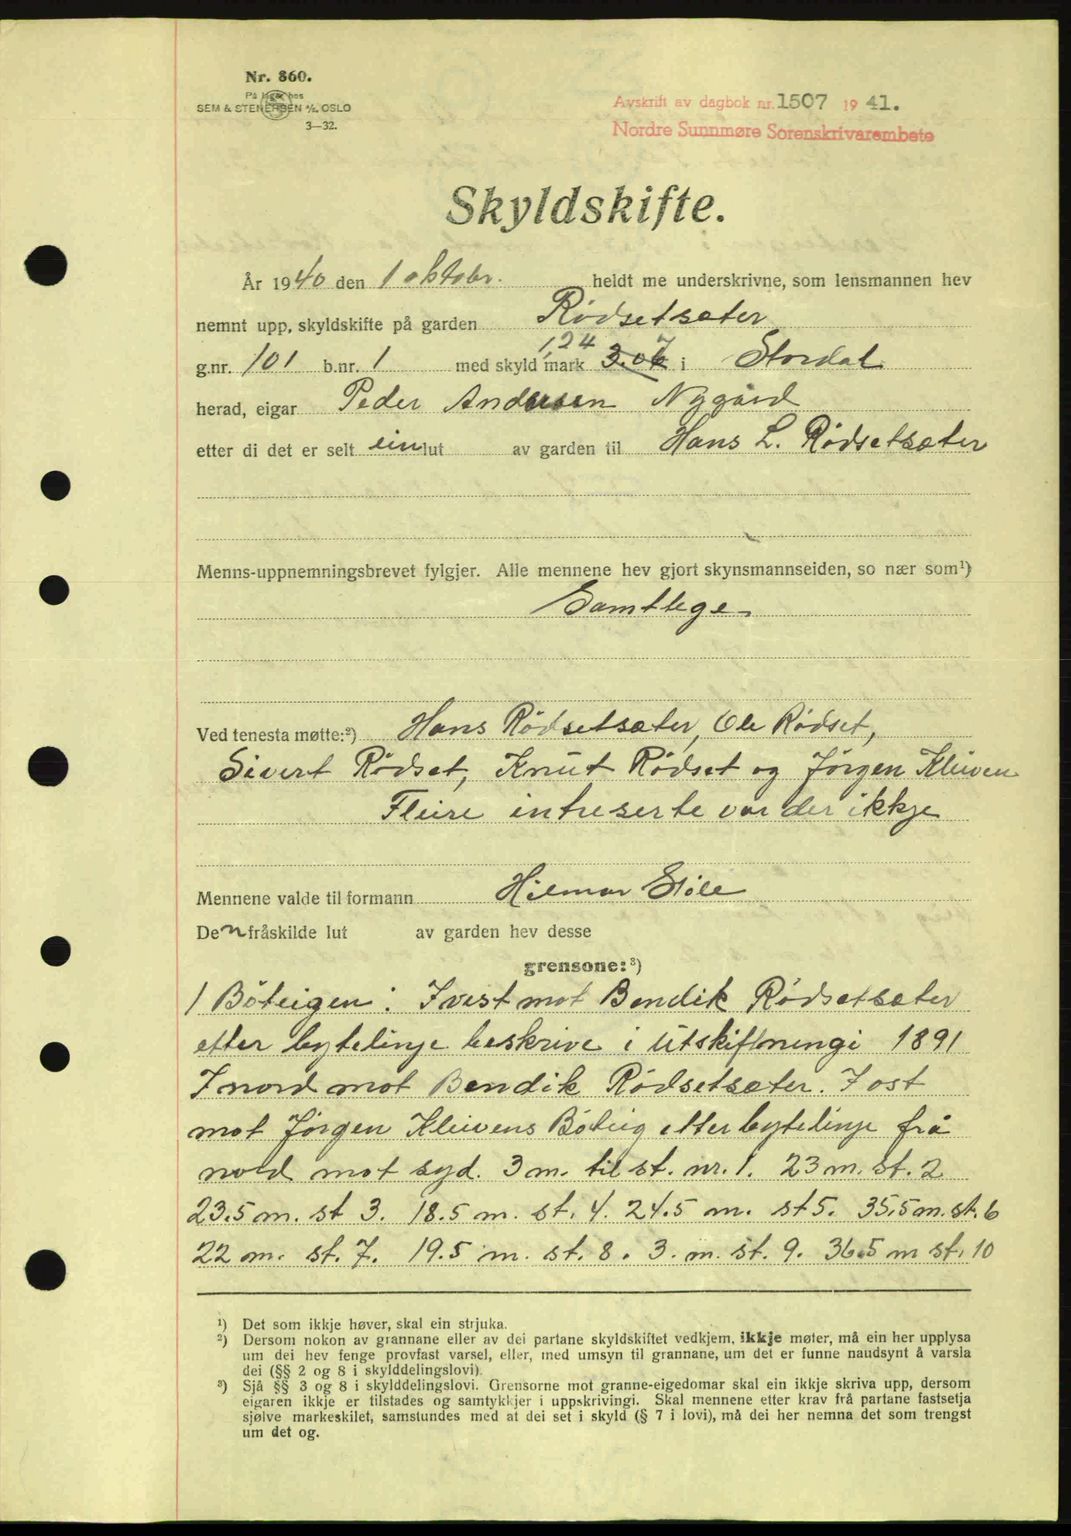 Nr. 360.
På lager hos
SEM & STENERSEN A/S. OSLO
3—32.
Avskrift av dagbok nr. 1507 19 41.
Nordre Sunnmøre Sorenskrivarembete
Skyldskifte.
År 1940 den 1 oktobr. heldt me underskrivne, som lensmannen hev
nemnt upp, skyldskifte på garden Rødsetsæter
1,24 7
g.nr. 101 b.nr. 1 med skyld mark 3.06 i Stordal
herad, eigar Peder Andersen Nygård
etter di det er selt ein lut av garden til Hans L. Rødsetsæter
Menns-uppnemningsbrevet fylgjer. Alle mennene hev gjort skynsmannseiden, so nær som¹)
Samtlege.
Ved tenesta møtte:²) Hans Rødsetsæter, Ole Rødset,
Sivert Rødset, Knut Rødset og Jørgen Kleiven
Fleire intreserte var der ikkje
Mennene valde til formann Hilmar Støle
Den fråskilde lut av garden hev desse
grensone:³)
1 Bøteigen: I vest mot Bendik Rødsetsæter
etter bytelinje beskrive i utskiftningi 1891
I nord mot Bendik Rødsetsæter. I ost
mot Jørgen Kleivens Bøteig etter bytelinje frå
nord mot syd. 3 m. til st. nr. 1. 23 m. st. 2
23.5 m. st 3. 18.5 m. st. 4. 24.5 m. st 5. 35.5 m. st. 6
22 m. st. 7. 19.5 m. st. 8. 3. m. st. 9. 36.5 m st. 10
¹) Det som ikkje høver, skal ein strjuka.
²) Dersom nokon av grannane eller av dei partane skyldskiftet vedkjem, ikkje møter, må ein her upplysa
um dei hev fenge provfast varsel, eller, med umsyn til grannane, um det er funne naudsynt å varsla
dei (§§ 2 og 8 i skylddelingslovi).
³) Sjå §§ 3 og 8 i skylddelingslovi. Grensorne mot granne-eigedomar skal ein ikkje skriva upp, dersom
eigaren ikkje er tilstades og samtykkjer i uppskrivingi. Skal mennene etter krav frå partane fastsetja
sjølve markeskilet, samstundes med at dei set i skyld (§ 7 i lovi), må dei her nemna det som trengst
um det og.